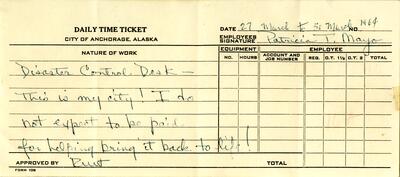 DAILY TIME TICKET
CITY OF ANCHORAGE, ALASKA
DATE 27 March to 31 March 1964
NO.
EMPLOYEES SIGNATURE Patricia T. Mayo
NATURE OF WORK
EQUIPMENT
EMPLOYEE
NO. HOURS ACCOUNT AND JOB NUMBER REG. O.T. 1½ O.T. 2 TOTAL
Disaster Control Desk —
This is my city! I do
not expect to be paid
for helping bring it back to life!
APPROVED BY
TOTAL
FORM 109